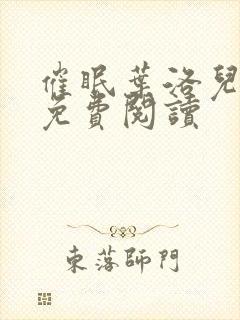 催眠葉洛兒
免費閱讀
東落師門